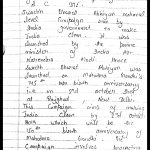 Q 2 Ans:-
Swachh Bharat Abhiyan national
level Campaign and by
India government to make
India clean it was
launched by the Prime
minister of India Mr.
Narendra Modi Since
Swachh Bharat Abhiyan was
launched on Mahatma Gandhi's
birth anniversary
i.e on 2nd october 2014
at Rajghat, New Delhi
This Campaign aims to make
India Clean by 2nd october
2019 which will be the
150th birth anniversary of
Mahatma Gandhi the
Campaign involves